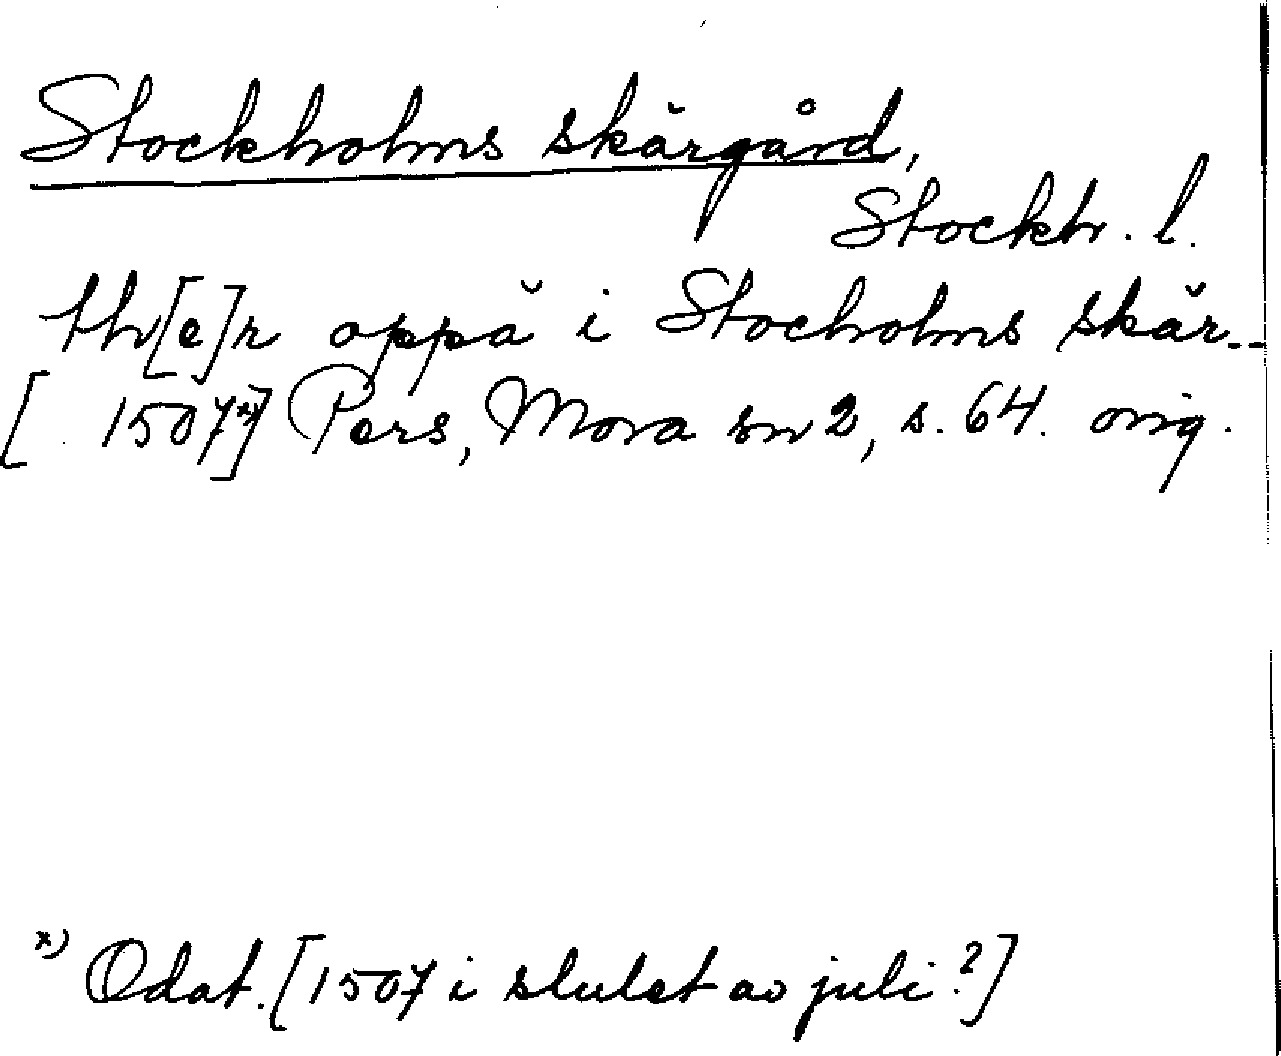 Stockholms skärgård,
Stockh. l.
th[e]r oppå i Stocholms skär..
[. 1507x)] Pers, Mora sn 2, s. 64. orig.
x) Odat. [1507 i slutet av juli?]